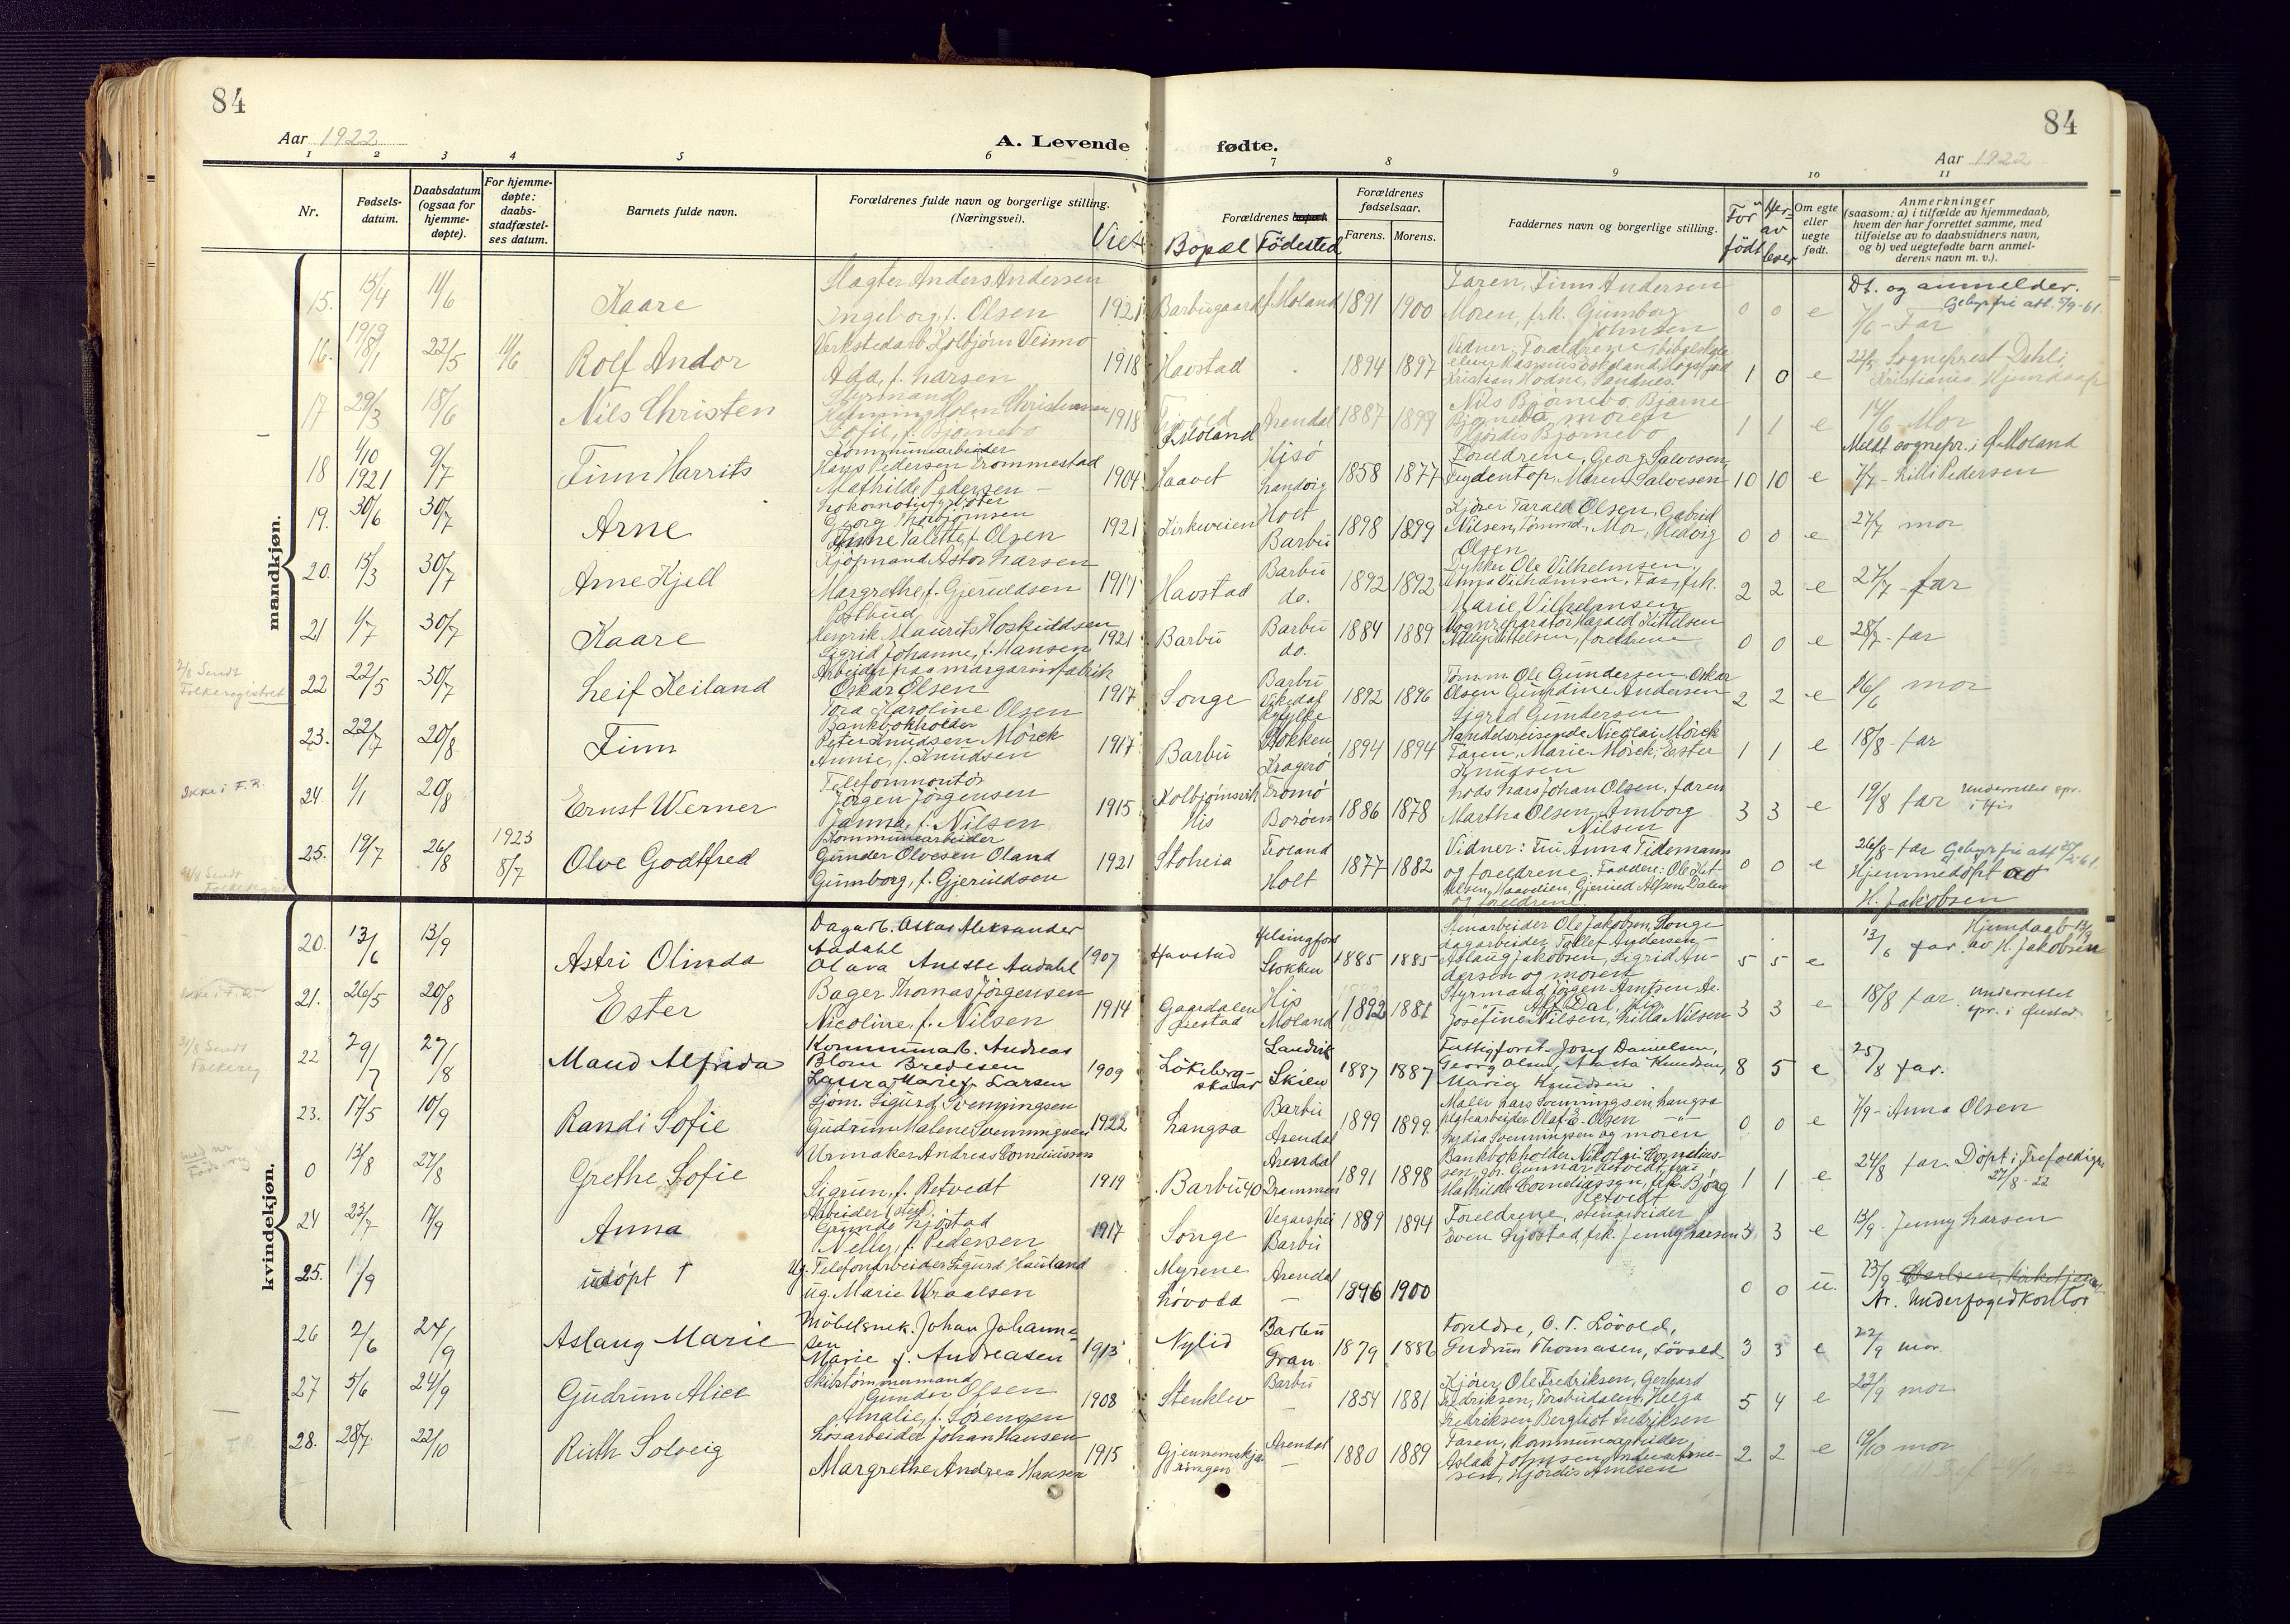 84
84
Aar 1922
A. Levende fødte.
Aar 1922
1 2 3 4 5 6 7 8 9 10 11
Nr.
Fødsels-
datum.
Daabsdatum
(ogsaa for
hjemme-
døpte).
For hjemme-
døpte:
daabs-
stadfæstel-
ses datum.
Barnets fulde navn.
Forældrenes fulde navn og borgerlige stilling.
(Næringsvei).
Viet
Forældrenes bopæl
Bopæl Födested
Forældrenes
fødselsaar.
Farens. Morens.
Faddernes navn og borgerlige stilling.
Før
født
Her-
av
lever
Om egte
eller
uegte
født.
Anmerkninger
(saasom: a) i tilfælde av hjemmedaab,
hvem der har forrettet samme, med
tilføielse av to daabsvidners navn,
og b) ved uegtefødte barn anmel-
derens navn m. v.).
Dt. og anmelder.
mandkjøn.
15. 15/4 11/6 Kaare
Slagter Anders Andersen
Ingeborg, f. Olsen
1921 Barbugaard f. Moland 1891 1900
Faren, Finn Andersen
Moren, frk. Gunborg
Johnsen
0 0 e
Gebyrfri att. 5/9-61.
7/6 - Far
16. 1919 18/1 22/5 11/6 Rolf Andor
Verkstedarb. Kolbjørn Veimo
Ada, f. Larsen
1918 Havstad 1894 1897
Vidner: Forældrene, bibelskole
Kristian Hodne, Sandnes.
1 0 e
22/5 Sogneprest Dahli
Kristiania Hjemdaap
17 29/3 18/6 Nils Christen
Styrmand
Henning Holm Christensen
Sofie, f. Bjornebo
1918 Arendal 1887 1899
Ø. Moland
Nils Bjørnebo, Bjarne
Bjørnebo, moren
Hjørdis Bjørnebo
1 1 e
14/6 Mor
Meldt sognepr. i Ø. Moland
18 1/10 1921 9/7 Finn Harrits
Kommunearbeider
Hans Pedersen Trommestad
Mathilde Pedersen -
1904 Haavet Hisö Landvig 1858 1877
Foreldrene, Georg Salvesen,
Maren Salvesen
10 10 e
7/7 - Lilli Pedersen
19. 30/6 30/7 Arne
Lokomotivfyrböter
Georg Thorbjørnsen
Anne Valette f. Olsen
1921 Kirkeveien Holt Barbu 1898 1899
Kjörer Tarald Olsen, Gabriel
Nilsen, Tømmd. Mor, Hedvig
Olsen
0 0 e
27/7 mor
20. 15/3 30/7 Arne Kjell
Kjöpmand Astor Larsen
Margrethe, f. Gjeruldsen
1917 Havstad Barbu do. 1892 1892
Dykker Ole Vilhelmsen,
Anna Vilhelmsen, Far, frk.
Marie Vilhelmsen
2 2 e
27/7 - far
21 1/7 30/7 Kaare
Postbud
Henrik Maurits Hoskuldsen
Sigrid Johanne, f. Hansen
1921 Barbu Barbu do. 1884 1889
Vognreparatör Harald Kittelsen
Kittelsen, foreldrene
0 0 e
28/7 - far
2/8 Sendt
Folkeregistret
22 22/5 30/7 Leif Keiland
Arbeider paa margarinfabrik
Oskar Olsen
Tora Karoline Olsen
1917 Songe Barbu Vikedal Ryfylke 1892 1896
Tömm. Ole Gundersen, Oskar
Olsen Gundine Andersen
Sigrid Gundersen
2 2 e
16/6 mor
23. 22/7 20/8 Finn
Bankbokholder
Peter Knudsen Mörck
Annie, f. Knudsen
1917 Barbu Stokken Kragerö 1894 1894
Handelsreisende Nicolai Mörck
Faren, Marie Mörck, Ester
Knudsen
1 1 e
18/8 - far
Ikke i F.R.
24 1/1 20/8 Ernst Werner
Telefonmontör
Jørgen Jørgensen
Janna, f. Nilsen
1915 Kolbjørnsvik His Tromö Borøen 1886 1878
Lods Lars Johan Olsen, faren
Martha Olsen, Amborg
Nilsen
3 3 e
19/8 far Underrettet spr.
i His
25. 19/7 26/8 1923 8/7 Olve Godtfred
Kommunearbeider
Gunder Olvesen Oland
Gunborg, f. Gjeruldsen
1921 Stoheia Froland Holt 1877 1882
Vidner: Fru Anna Tidemann
og foreldrene. Faddere: Ole Kit-
telsen, Haaveien, Gjerued Alfsen Dalen
og foreldrene.
0 0 e
26/8 - far Gebyrfri att.
Hjemmedöpt av
H. Jakobsen
Sendt
Folkeregist
kvindekjøn.
20. 13/6 13/9 Astri Olinda
Dagarb. Oskar Aleksander
Aadahl
Olava Anette Aadahl
1907 Havstad Helsingfors Stokken 1885 1885
Stenarbeider Ole Jakobsen, Songe
dagarbeider Tallef Andersen,
Aslaug Jakobsen, Sigrid An-
dersen og moren
5 5 e
13/6 far Hjemdaab 13/9
av H. Jakobsen
Ikke i F.R.
21. 26/5 20/8 Ester
Bager Thomas Jörgensen
Nicoline, f. Nilsen
1914 Gaardalen Øiestad His Moland 1892 1881
Styrmand Jørgen Arntsen, Ar.
Alf Dal, His,
Josefine Nilsen, Lilla Nilsen
3 3 e
18/8 far. Underrettet
spr. i Øiestad
Sendt
Folkereg
22 29/7 27/8 Maud Alfrida
Kommunearb. Andreas
Blom Bredesen
Laura Marie f. Larsen
1909 Lökeberg-
skaar Landvik Skien 1887 1887
Fattigforst. Josef Danielsen,
Georg Olsen, Aasta Knudsen,
Maria Knudsen
8 5 e
25/8 far.
23. 17/5 10/9 Randi Sofie
Sjöm. Sigurd Svenningsen
Gudrun Malene Svenningsen
1922 Langsa Barbu Arendal 1899 1899.
Maler Lars Svenningsen, Langsa
platearbeider Olaf E. Olsen -"-
Lydia Svenningsen og moren
0 0 e
7/9 - Anna Olsen
0 13/8 27/8 Grethe Sofie
Urmaker Andreas Corneliussen
Sigrun, f. Retvedt
1919 Barbu 40 Arendal Drammen 1891 1898
Bankbokholder Nikolai Cornelius-
sen, hr. Gunnar Retvedt, fru
Mathilde Corneliussen, frk. Bjørg
Retvedt
1 1 e
24/8 far. Döpt i Trefoldigh.
27/8 - 22
24 23/7 17/9 Anna
Arbeider (sten)
Gunde Ljøstad
Nelly, f. Pedersen
1917 Songe Vegarshei Barbu 1889 1894
Foreldrene, stenarbeider
Even Ljøstad, frk. Jenny Larsen
3 3 e
13/9 - Jenny Larsen
25. 11/9 udöpt †
Ug. Telefonarbeider Sigurd Hauland
ug. Marie Wraalsen
Myrene Lövold Arendal - 1896 1900
0 0 u.
23/9
Ar. Underfogedkontor
26 2/6 24/9 Aslaug Marie
Möbelsnek. Johan Johanne-
sen
Marie f. Andreasen
1913 Nylid Barbu Gran 1879 1886
Foreldre, O. T. Lövold,
Gudrun Thomasen, Lövold
3 3 e
22/9 mor.
27 5/6 24/9 Gudrun Alice
Skibstömmermand
Gunder Olsen
Amalie, f. Sörensen
1908 Stenklev Barbu - 1854 1881
Kjörer, Ole Fredriksen, Gerhard
Fredriksen, Torsbudalen, Helga
Fredriksen, Bergliot Fredriksen
5 4 e
22/9 mor
28. 28/7 22/10 Ruth Solveig
Løsarbeider Johan Hansen
Margrethe Andrea Hansen
1915 Gjennemskjæ-
ringen Arendal - 1880 1889
Faren, kommunearbeider
Aslak Johnsen,
sen, Hjördis Arnesen
2 2 e
19/10 mor